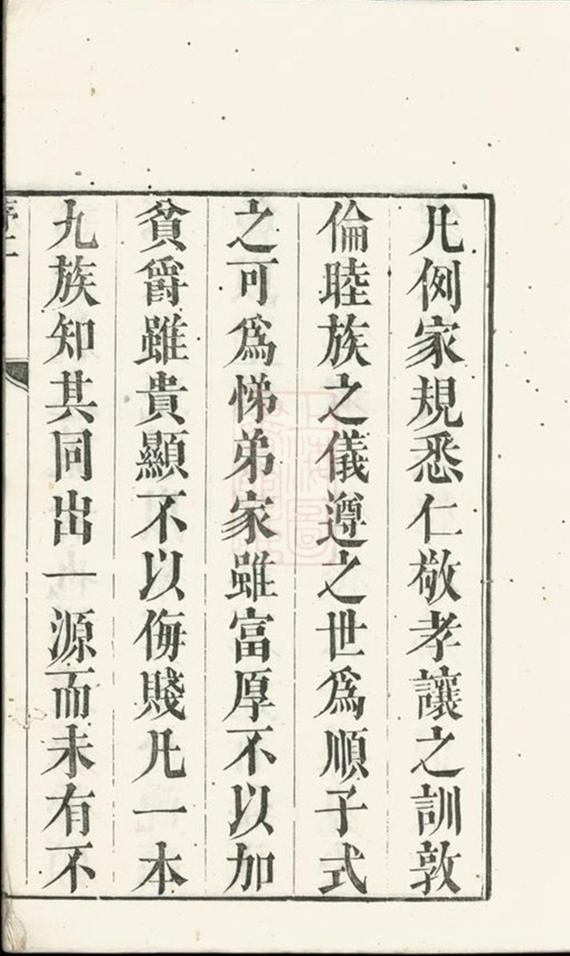 凡例家規悉仁敬孝讓之訓敦
倫睦族之儀遵之世爲順子式
之可爲悌弟家雖富厚不以加
貧爵雖貴顯不以侮賤凡一本
九族知其同出一源而未有不